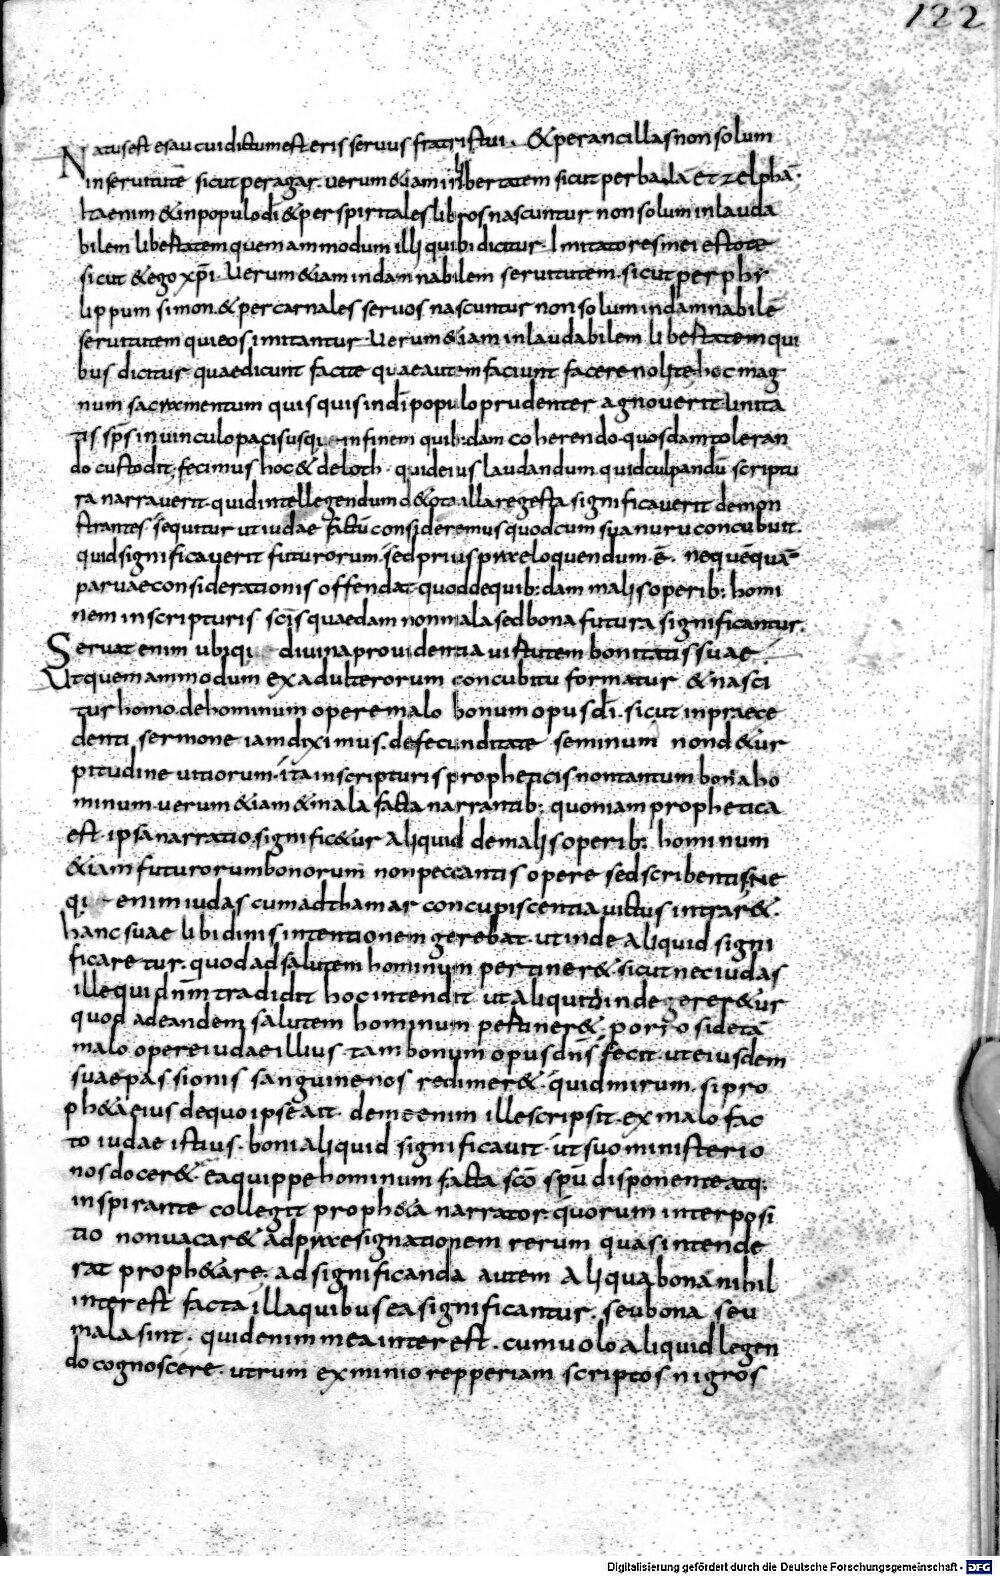 122
Natus est esau cui dictum est eris servus fratri tui. & per ancillas non solum
in servitutē sicut per agar. verum &iam in libertatem sicut per balā et zelphā.
Ita enim & in populo dī & per spiritales libros nascuntur non solum in lauda
bilem libertatem quemammodum illi quibus dicitur. Imitatores mei estote
sicut & ego xp̄i. Verum &iam in damnabilem servitutem. sicut per phi
lippum simon. & per carnales servos nascuntur non solum in damnabilē
servitutem qui eos imitantur. Verum &iam in laudabilem libertatem qui
bus dicitur quae dicunt facite quae autem faciunt facere nolite hoc mag
num sacramentum quisquis in dī populo prudenter agnoverit. unita
tis sp̄s in vinculo pacis usq; in finem quib;dam coherendo. quosdam toleran
do custodit. fecimus hoc & de loth. quid eius laudandum. quid culpandū scriptu
ra narraverit. quid intellegendum d& ota illa re gesta significaverit demon
strantes sequitur ut iudae factū consideremus quod cum sua nuru concubuit.
quid significaverit futurorum. sed prius praeloquendum ē. ne quēquā
parvae considerationis offendat quod de quib;dam malis operib; homi
nem in scripturis scīs quaedam non mala sed bona futura significantur.
Servat enim ubiq; divina providentia virtutem bonitatis suae
Ut quemammodum ex adulterorum concubitu formatur & nasci
tur homo. de hominum opere malo bonum opus dī. sicut in praece
denti sermone iam diximus. de fecunditate seminum non d& ur
pitudine vitiorum. ita in scripturis propheticis non tantum bona ho
minum. verum &iam & mala facta narrantib; quoniam prophetica
est ipsa narratio. signific&ur aliquid de malis operib; hominum
&iam futurorum bonorum non peccantis opere sed scribentis. Ne
q; enim iudas cum ad thamar concupiscentia victus intrar&.
hanc suae libidinis intentionem gerebat. ut inde aliquid signi
ficaretur. quod ad salutem hominum pertiner&. sicut nec iudas
ille qui dn̄m tradidit hoc intendit ut aliquid inde gerer&ur
quod ad eandem salutem hominum pertiner&. porro si de tā
malo opere iudae illius tam bonum opus dn̄s fecit. ut eiusdem
suae passionis sanguine nos redimer&. quid mirum. si pro
ph&a eius de quo ipse ait. de me enim ille scripsit. ex malo fac
to iudae istius. boni aliquid significavit. ut suo ministerio
nos docer&. ea quippe hominum facta scō spū disponente atq;
inspirante collegit proph&a narrator quorum interposi
tio non vacar& ad praesignationem rerum quas intende
rat proph&are. ad significanda autem aliqua bona nihil
interest facta illa quibus ea significantur. seu bona seu
mala sint. quid enim mea interest. cum volo aliquid legen
do cognoscere. utrum ex minio repperiam scriptos nigros
Digitalisierung gefördert durch die Deutsche Forschungsgemeinschaft - DFG